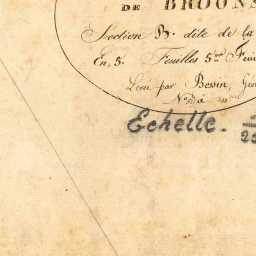 DE BROONS
Section B. dite de la
En, 5. Feuilles 5me Feui
Levé par Bessin, Gé
Echelle.